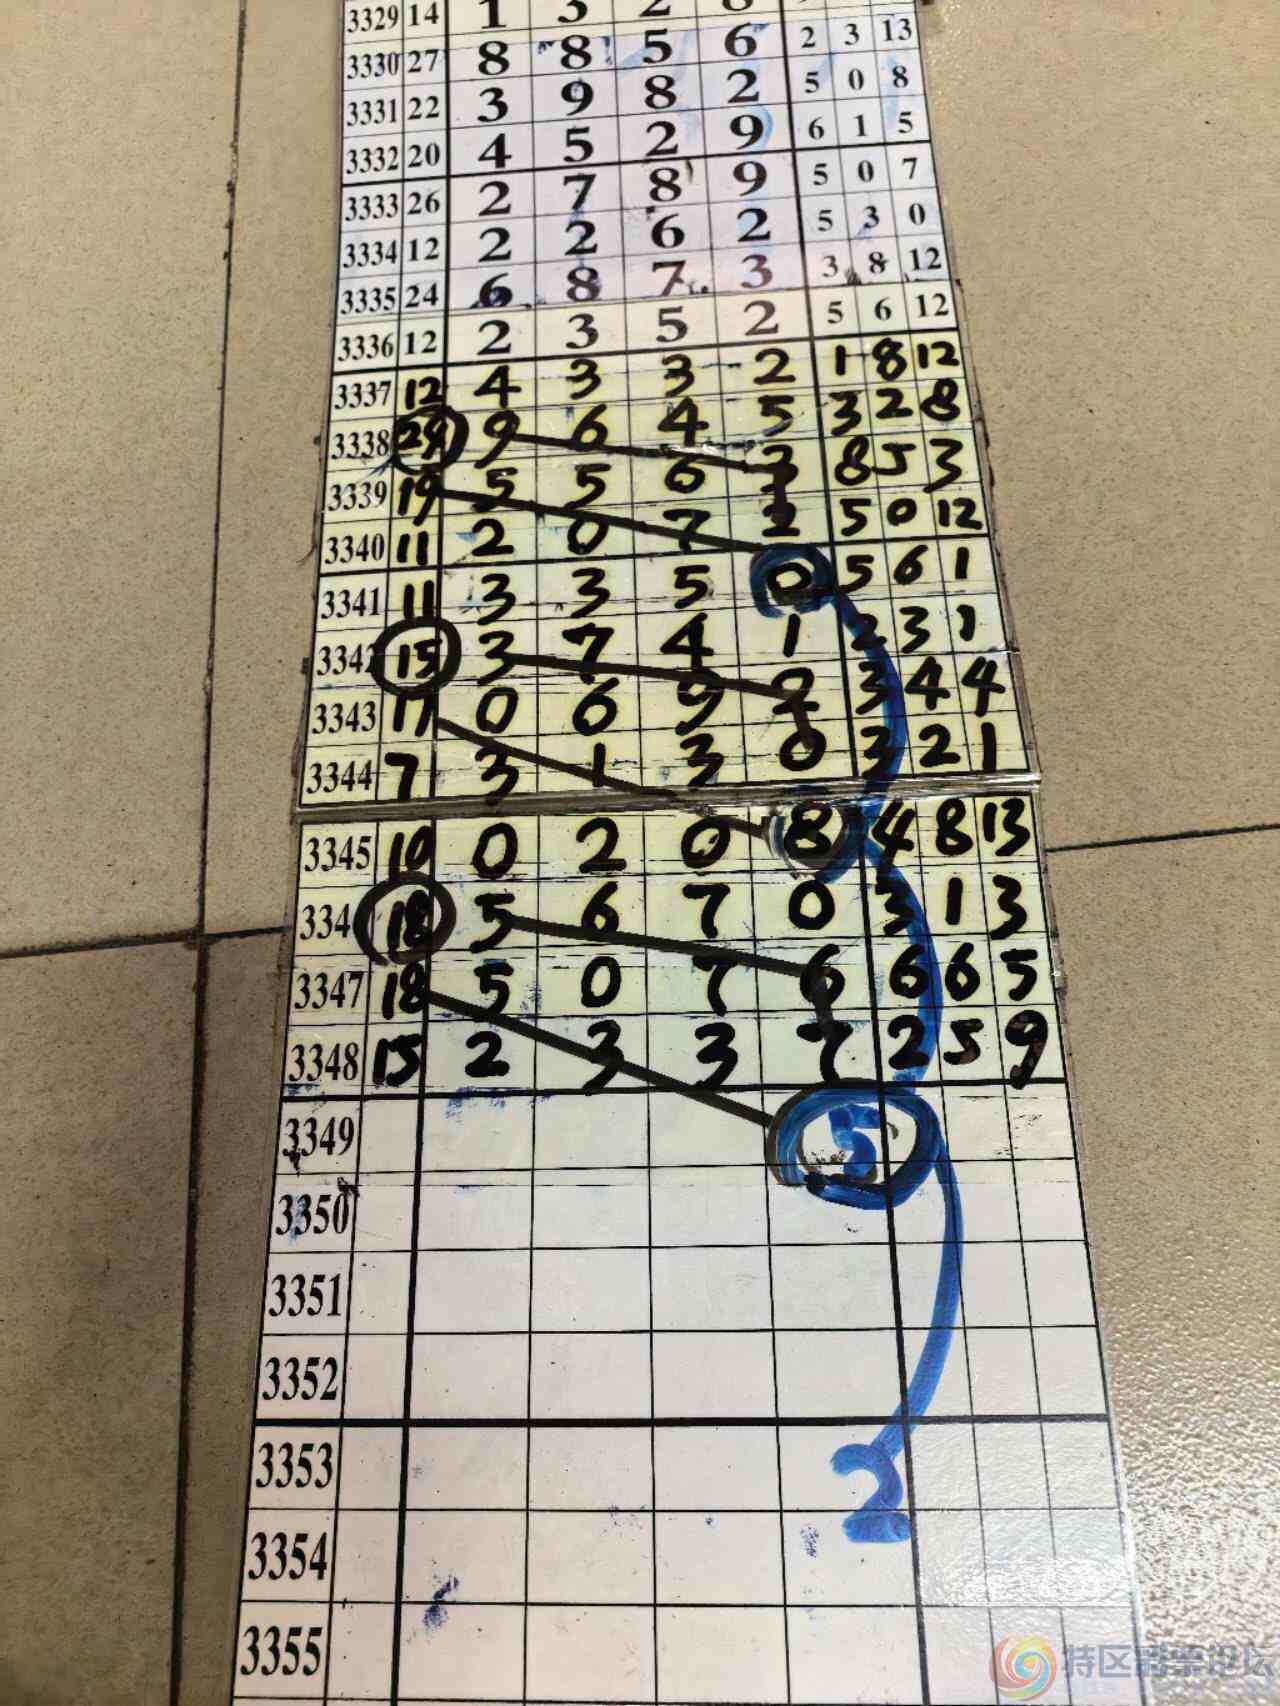 3329 14 1 3 2
3330 27 8 8 5 6 2 3 13
3331 22 3 9 8 2 5 0 8
3332 20 4 5 2 9 6 1 5
3333 26 2 7 8 9 5 0 7
3334 12 2 2 6 2 5 3 0
3335 24 6 8 7 3 3 8 12
3336 12 2 3 5 2 5 6 12
3337 12 4 3 3 2 1 8 12
3338 24 9 6 4 5 3 2 8
3339 19 5 5 6 3 8 5 3
3340 11 2 0 7 2 5 0 12
3341 11 3 3 5 0 5 6 1
3342 15 3 7 4 1 2 3 1
3343 17 0 6 9 2 3 4 4
3344 7 3 1 3 0 3 2 1
3345 10 0 2 0 8 4 8 13
334 18 5 6 7 0 3 1 3
3347 18 5 0 7 6 6 6 5
3348 15 2 3 3 7 2 5 9
3349 5
3350
3351
3352
3353 2
3354
3355
特区彩票论坛